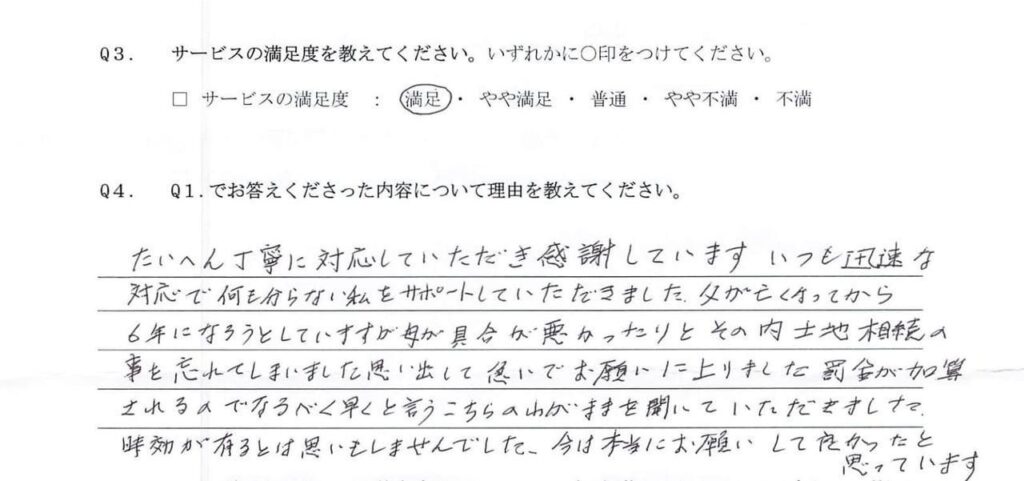 Q3. サービスの満足度を教えてください。いずれかに〇印をつけてください。
□ サービスの満足度 : 満足・ やや満足 ・ 普通 ・ やや不満 ・ 不満
Q4. Q1.でお答えくださった内容について理由を教えてください。
たいへん丁寧に対応していただき感謝しています いつも迅速な
対応で何も分らない私をサポートしていただきました.父が亡くなってから
6年になろうとしていますが母が具合が悪かったりと その内土地相続の
事を忘れてしまいました思い出して急いでお願いに上りました 罰金が加算
されるのでなるべく早くと言うこちらのわがままを聞いていただきました
時効が有るとは思いもしませんでした、今は本当にお願いして良かったと
思っています